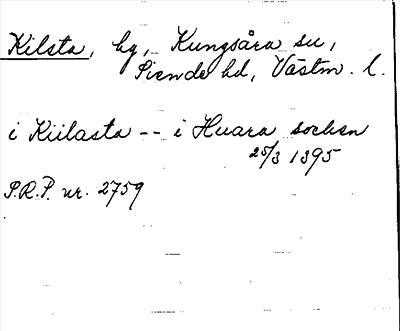 Kilsta, by, Kungsåra sn,
Siende hd, Västm. l.
i Kiilasta -- i Huara socken
25/3 1395
P.R.P. nr. 2759